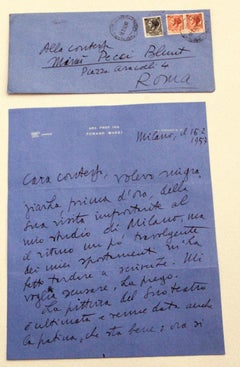 Alla contessa
Mimì Pecci Blunt
Piazza Aracoeli 4
Roma
Milano, il 16.2
1957
Cara contessa, volevo ringra
ziarla prima d'ora, della
sua visita improvvisa al
mio studio di Milano, ma
il ritmo un po' travolgente
dei miei spostamenti mi ha
fatto tardare a scriverle. Mi
voglia scusare, La prego.
La pittura del suo teatro
è ultimata e venne data anche
la patina, che sta bene; ora si